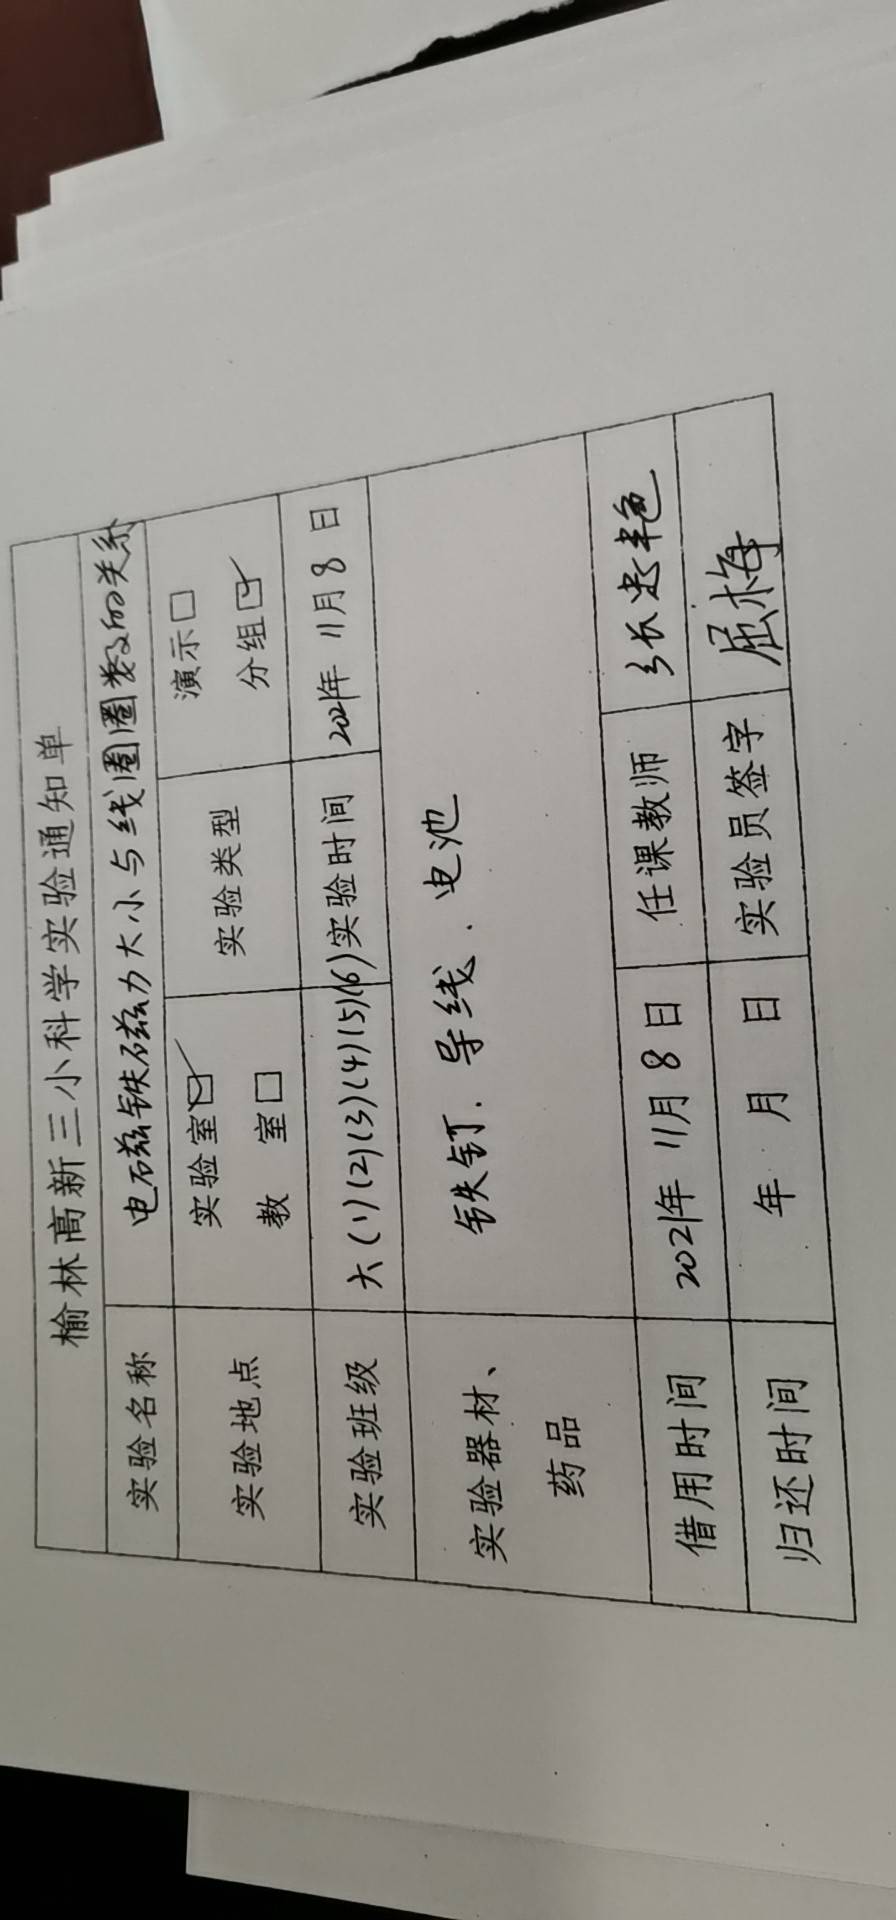 榆林高新三小科学实验通知单
实验名称 电磁铁磁力大小与线圈圈数的关系
实验地点 实验室☑ 教 室□ 实验类型 演示□ 分组☑
实验班级 六(1)(2)(3)(4)(5)(6) 实验时间 2021年 11月 8 日
实验器材、药品 铁钉、导线、电池
借用时间 2021年 11月 8 日 任课教师 张
归还时间 年 月 日 实验员签字 屈梅